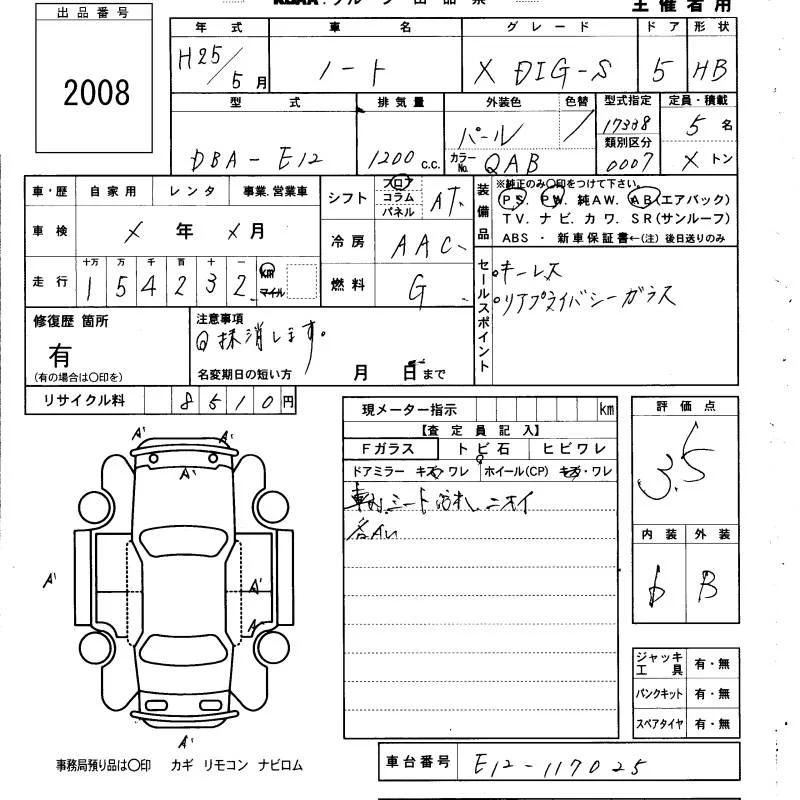 出品番号
2008
主催者用
年式 車名 グレード ドア 形状
H25/5月 ノート X DIG-S 5 HB
型式 排気量 外装色 色替 型式指定 定員・積載
DBA-E12 1200c.c. パール / 17338 5名
カラーNo. QAB 類別区分 0007 ×トン
車・歴 自家用 レンタ 事業.営業車
車検 ×年×月
走行 十万 万 千 百 十 一
154232 km マイル
シフト フロア コラム パネル AT
冷房 AAC
燃料 G
装備品
※純正のみ〇印をつけて下さい。
PS. PW. 純AW. AB(エアバック)
TV. ナビ. カワ. SR(サンルーフ)
ABS ・ 新車保証書←(注) 後日送りのみ
セールスポイント
キーレス
リアプライバシーガラス
修復歴 箇所
有
(有の場合は〇印を)
注意事項
Q抹消します。
名変期日の短い方 月 日まで
リサイクル料 8510円
現メーター指示 km
【査定員記入】
Fガラス トビ石 ヒビワレ
ドアミラー キズ・ワレ ホイール(CP) キズ・ワレ
車内シート汚れ、ニオイ
各AU
評価点
3.5
内装 外装
D B
A' A'
A'
A' A'
A
A'
ジャッキ工具 有・無
パンクキット 有・無
スペアタイヤ 有・無
事務局預り品は〇印 カギ リモコン ナビロム
車台番号 E12-117025